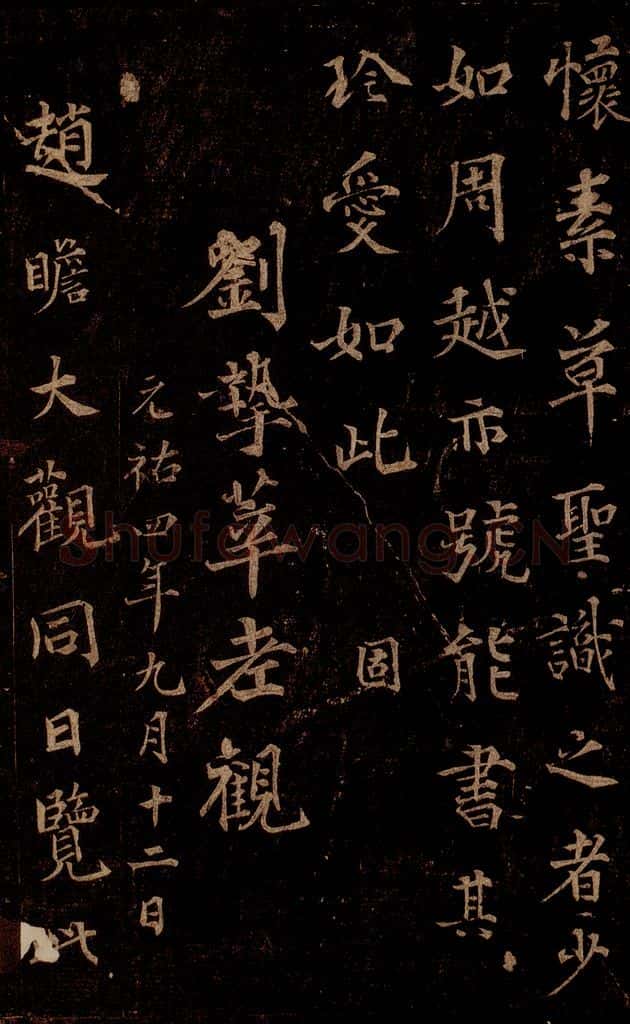 懷素草聖識之者少
如周越亦號能書其
珍愛如此 固
劉摯莘老觀
元祐四年九月十二日
趙瞻大觀同日覽此
Shufawang.CN